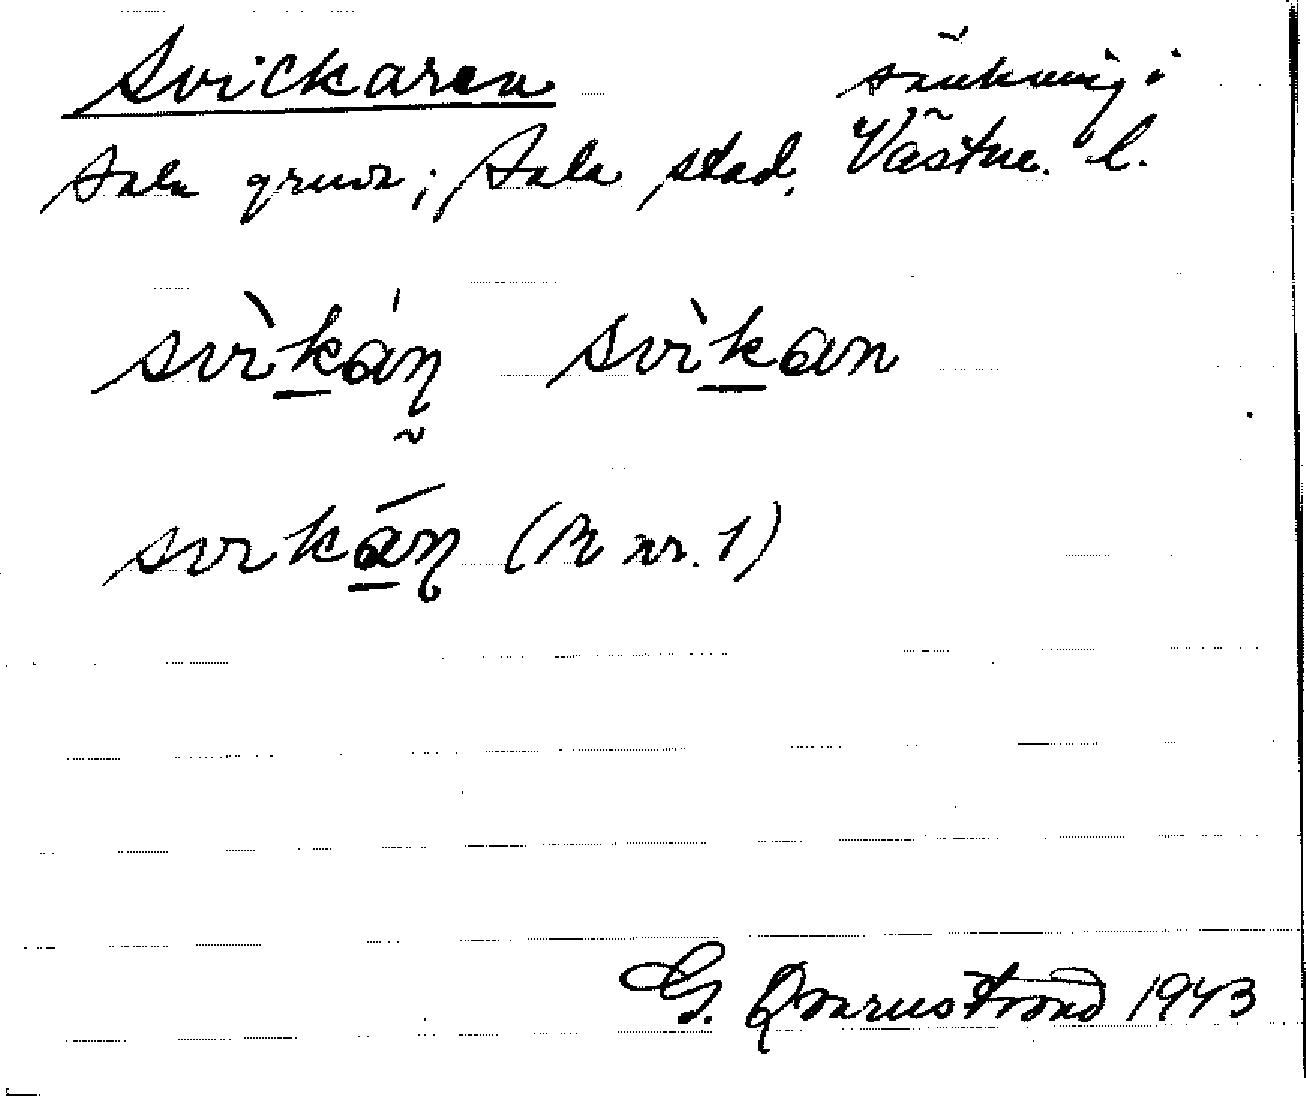 Svickaren sänkning i
Sala gruva; Sala stad, Västm. l.
svìkáη svìkan
svikáη (M nr. 1)
G. Qvarnström 1943